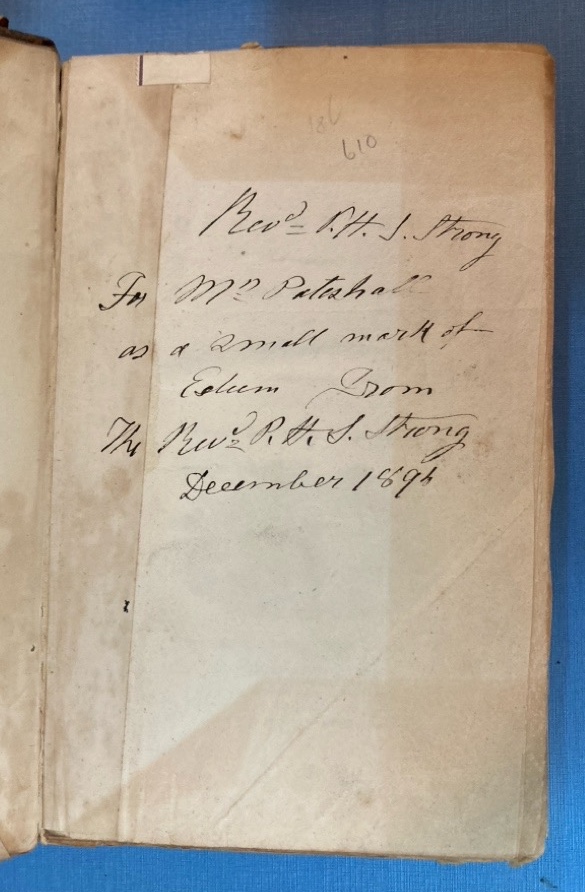 610
Revd P. H. S. Strong
For Mr Pateshall
as a small mark of
Esteem From
The Revd P. H. S. Strong
December 1896